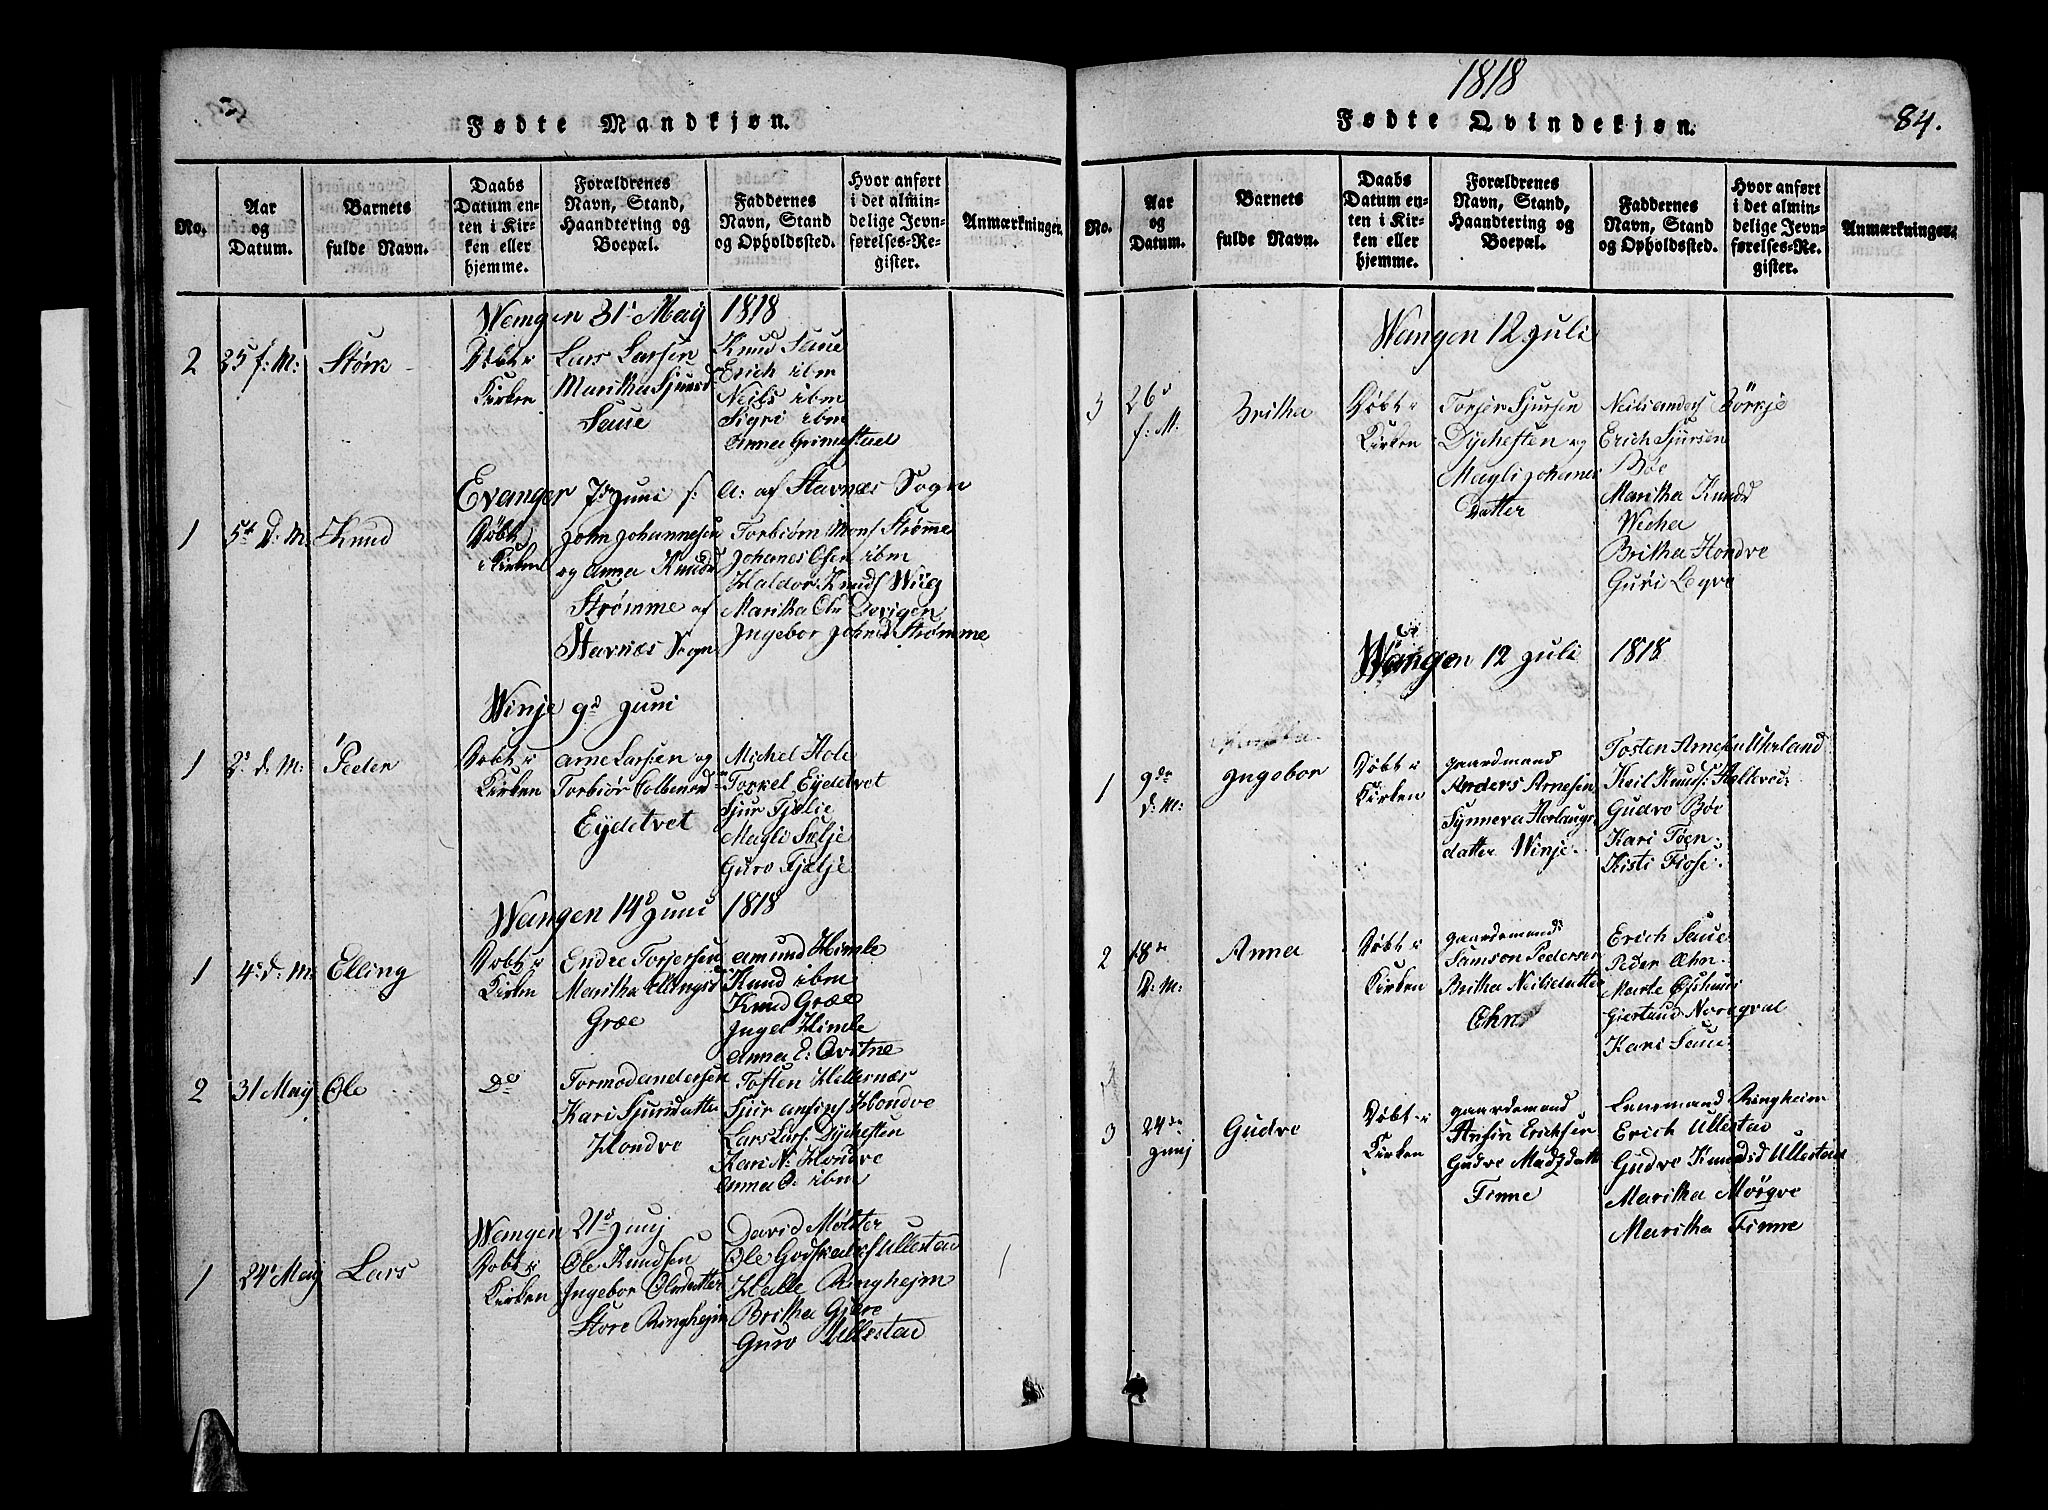 Fødte Mandkjøn.
No.
Aar
og
Datum.
Barnets
fulde Navn.
Daabs
Datum en-
ten i Kir-
ken eller
hjemme.
Forældrenes
Navn, Stand,
Haandtering og
Boepæl.
Faddernes
Navn, Stand
og Opholdssted.
Hvor anført
i det almin-
delige Jevn-
førelses-Re-
gister.
Anmærkninger.
Wangen 31 Maij 1818
2 25 f: M: Størk
Døbt i
Kirken
Lars Larsen
Maritha Sjursd
Saue
Knud Saue
Erich ibm
Neils ibm
Sigri ibm
Anna Grimestad
Evanger 7de Juni f: a: af Stavnæs Sogn
1 5t d. M: Knud
Døbt
i Kirken
John Johannesen
og Anna Knudsd
Strømme af
Stavnæs Sogn
Torbiörn Mons Strømme
Johanes Olsen ibm
Haldor Knuds Wiig
Maritha Ols
Ingebor Johnsd Strømme
Winje 9d Juni
1 2d d. M: Peder
Døbt i
Kirken
Arne Larsen og
Torbiör Colbensd
Eydetvet
Michel Hole
Torkel Eydetvet
Sjur Fjælie
Magli Sælje
Guro Fjælje
Wangen 14d Juni 1818
1 4d d. M: Elling
Døbt i
Kirken
Endre Torjersen
Maritha Ellingsd
Græe
Amund Himle
Knud ibm
Knud Græe
Ingel Himle
Anna E: Qvitne
2 31 Maij Ole
Do
Tormod Andersen
Kari Sjursdatter
Hondve
Tosten Hellesnæs
Sjur Anfins Hondve
Lars Lars: Dychesten
Kari N: Hondve
Anna O: ibm
Wangen 21d Junj
1 24d Maij Lars
Døbt i
Kirken
Ole Knudsen
Ingebor Olsdatter
Store Ringhejm
David Mølster
Ole Godskalks Ullestad
Halle Ringhejm
Britha Gjere
Guro Ullestad
1818
Fødte Qvindekjøn.
84.
No.
Aar
og
Datum.
Barnets
fulde Navn.
Daabs
Datum en-
ten i Kir-
ken eller
hjemme.
Forældrenes
Navn, Stand,
Haandtering og
Boepæl.
Faddernes
Navn, Stand
og Opholdssted.
Hvor anført
i det almin-
delige Jevn-
førelses-Re-
gister.
Anmærkninger.
Wangen 12 Juli
3 26d
f. M. Britha
Døbt i
Kirken
Torjer Sjursen
Dychesten og
Magli Johanes
Datter
Neils Anders Börkje
Erich Sjursen
Böe
Maritha Knudsd
Wicha
Britha Hondve
Guri Legve
Wangen 12 Juli 1818
1 9de
d: M: Ingebor
Døbt i
Kirken
Gaardemand
Anders Arnesen
Synneva Herlaugs-
datter Winje
Tosten Arnesen Uhrland
Keil Knuds:
Gudve Böe
Kari Töen
Kisti Fiose
2 18de
D: M: Anna
Døbt i
Kirken
Gaardemand
Samson Pedersen
Britha Neilsdatter
Øhn
Erich Saue
Peder Æhn
Marte Ofshuus
Giertrud Noreqval
Kari Saue
3 24de
Junj Gudve
Døbt i
Kirken
Gaardemand
Anfin Ericksen
Gudve Madsdatt
Finne
Lensmand Ringheim
Erich Ullestad
Gudve Knudsd Ullestad
Maritha Mörqve
Maritha Finne